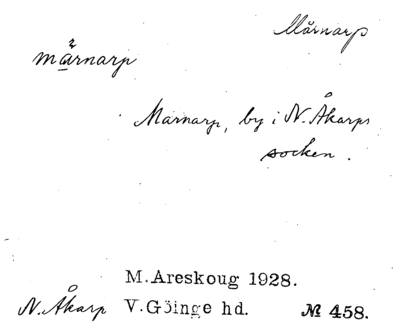 Mårnarp
märnarp
Marnarp, by i N. Åkarps
socken.
M.Areskoug 1928.
N. Åkarp V.Göinge hd. № 458.